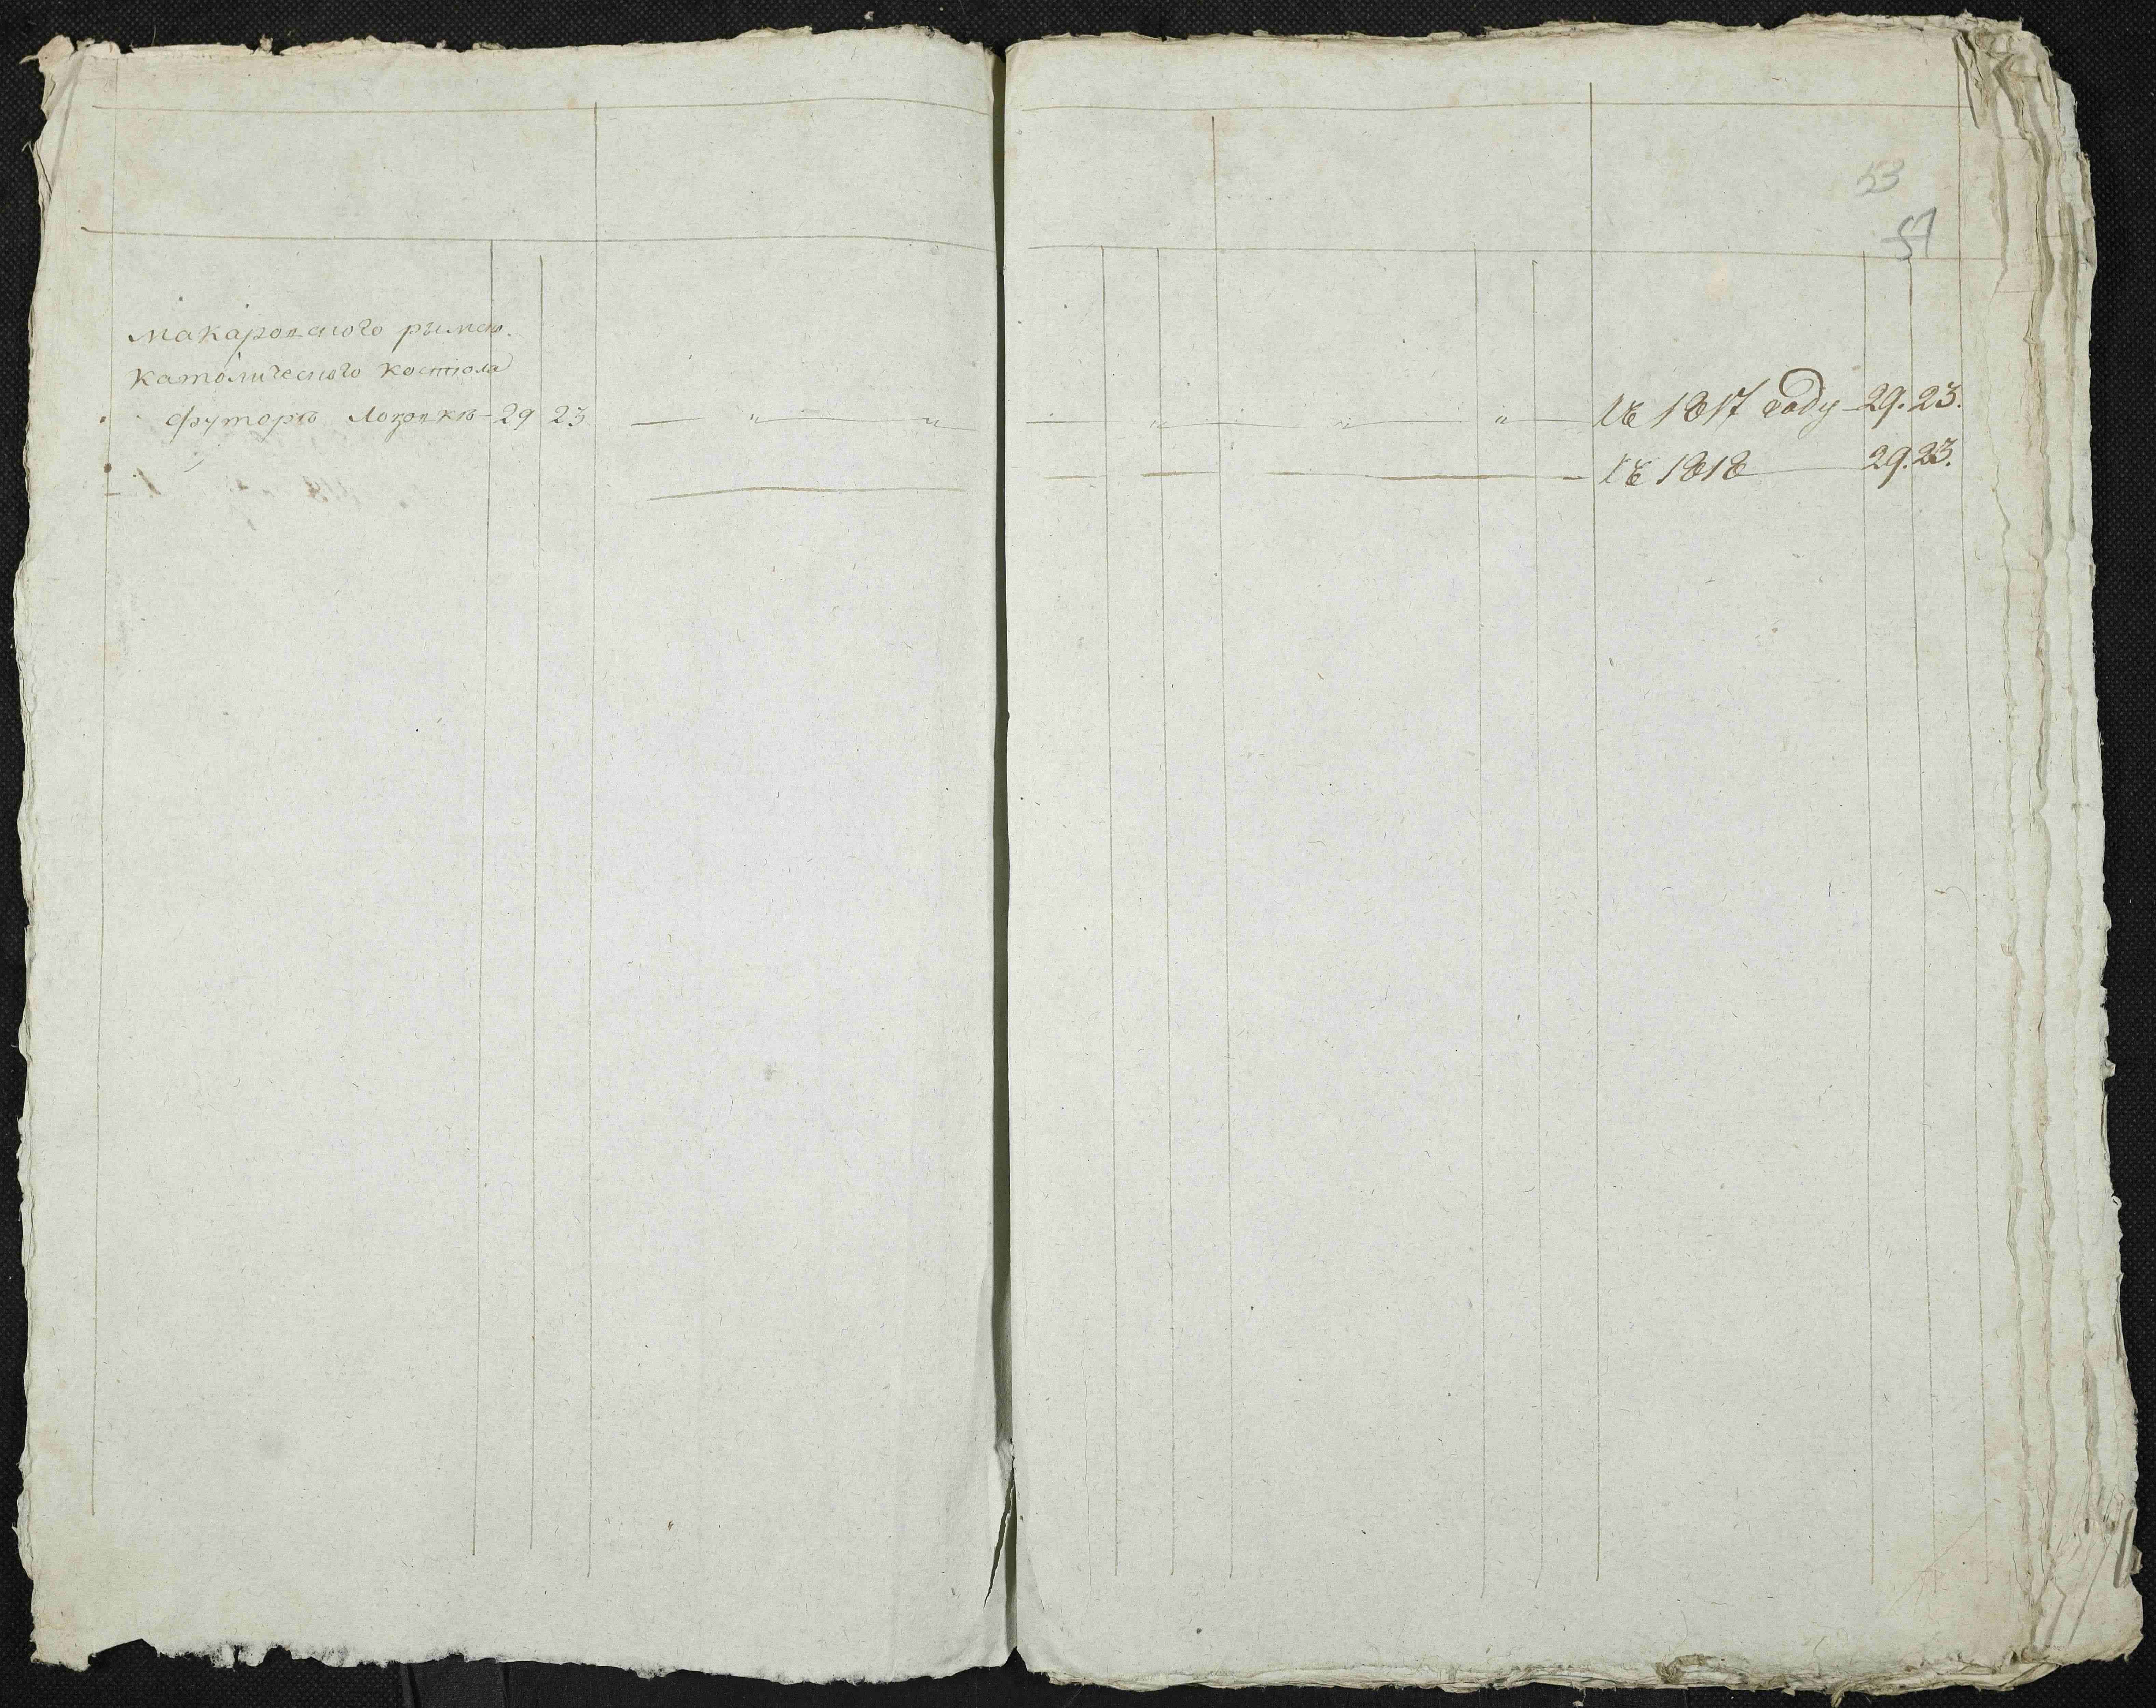 53
51
Макаровского римско
католического костіола
футоръ Лозовкъ - 29 23 — " — " — " — " — " — Къ 1817 году 29. 23.
— Къ 1818 — 29. 23.